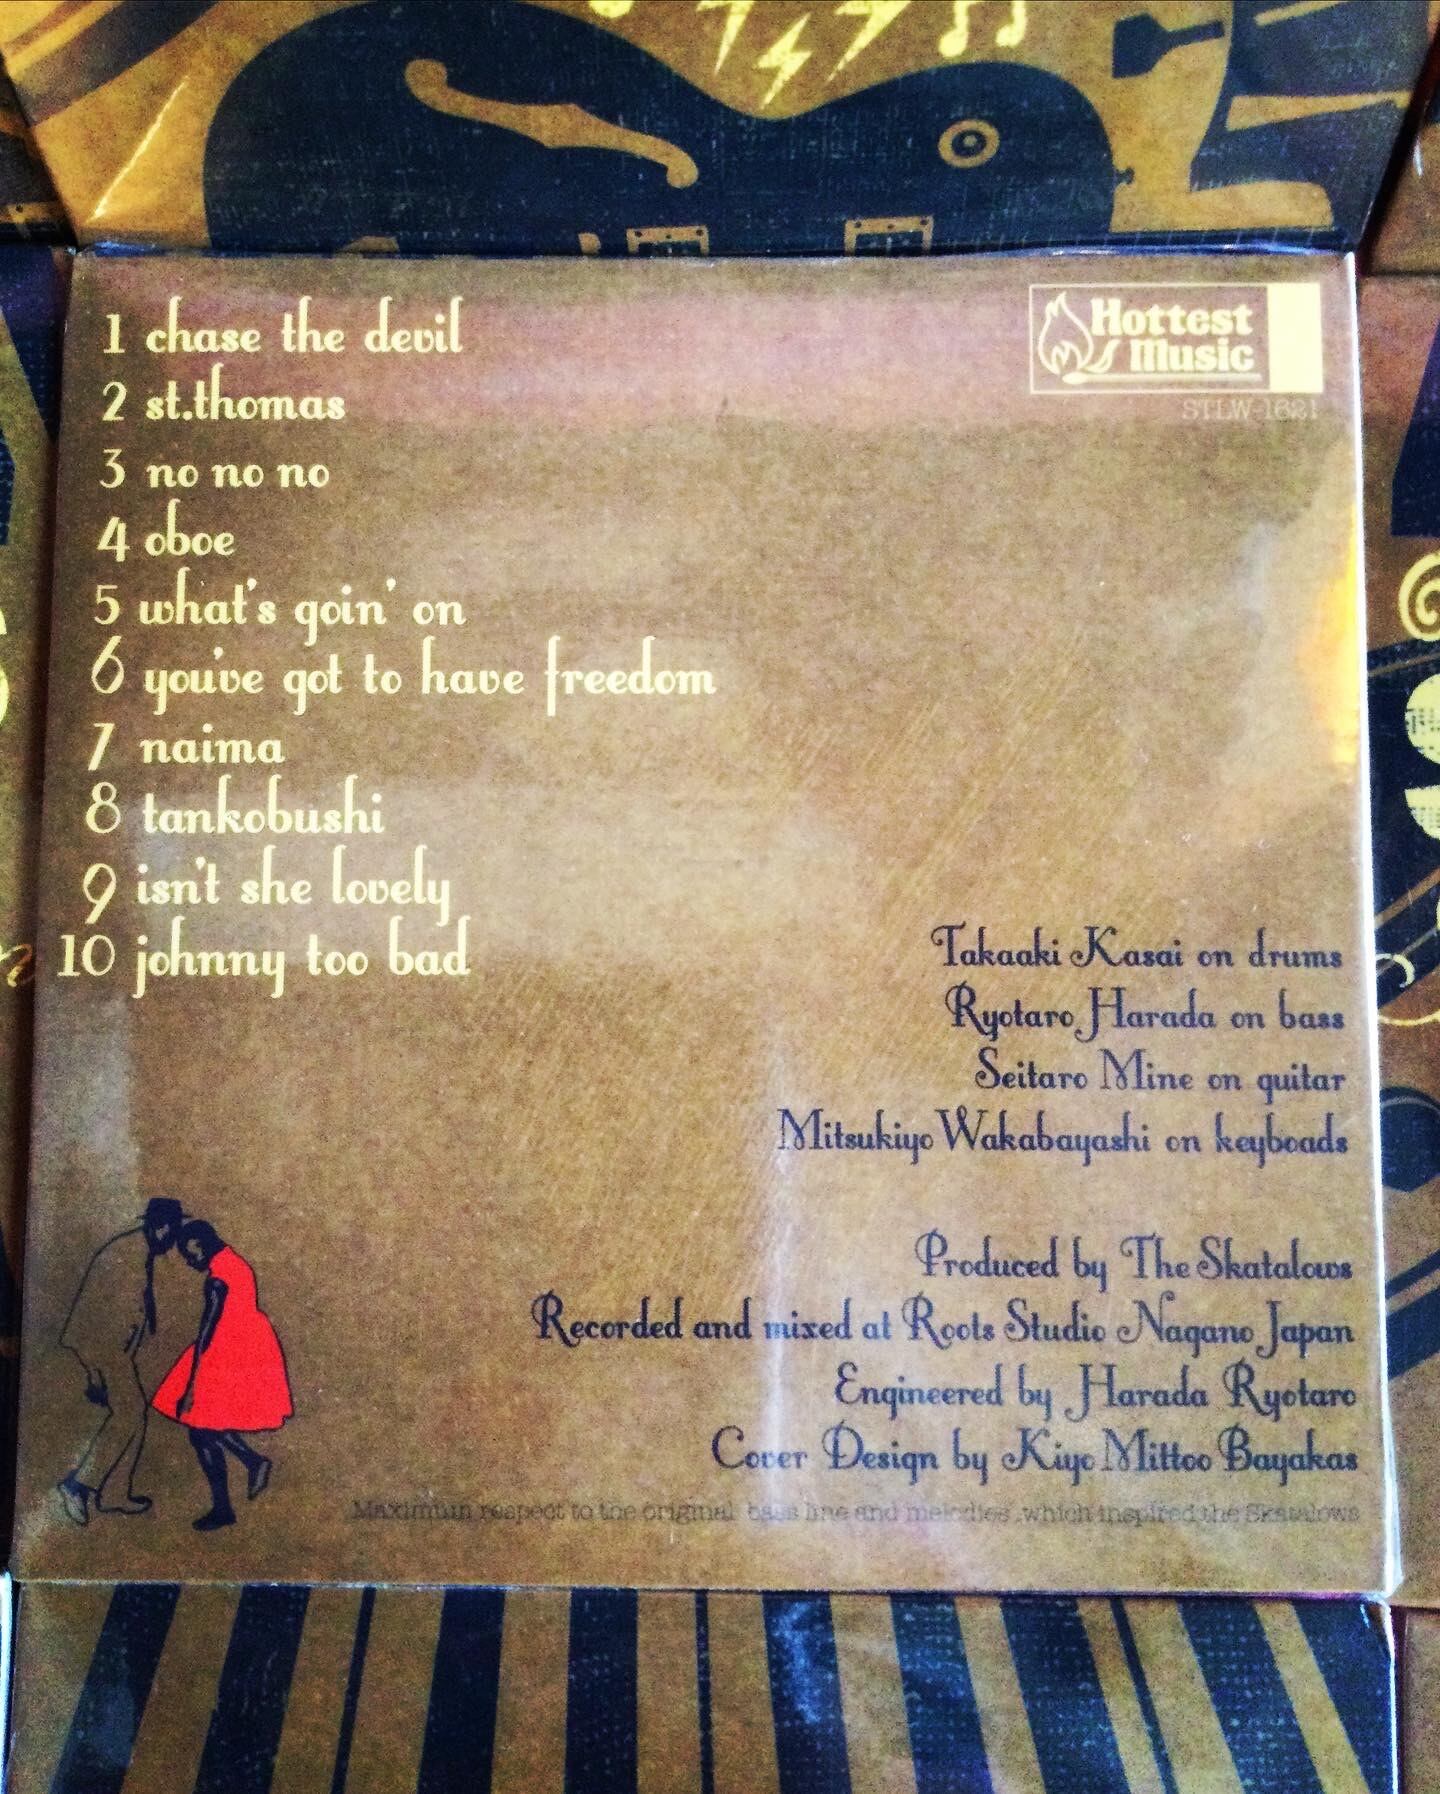 1 chase the devil
2 st.thomas
3 no no no
4 oboe
5 what's goin' on
6 you've got to have freedom
7 naima
8 tankobushi
9 isn't she lovely
10 johnny too bad
Hottest
Music
STLW-1621
Takaaki Kasai on drums
Ryotaro Harada on bass
Seitaro Mine on guitar
Mitsukiyo Wakabayashi on keyboads
Produced by The Skatalows
Recorded and mixed at Roots Studio Nagano Japan
Engineered by Harada Ryotaro
Cover Design by Kiyo Mittoo Bayakas
Maximum respect to the original bass line and melodies .which inspired the Skatalows